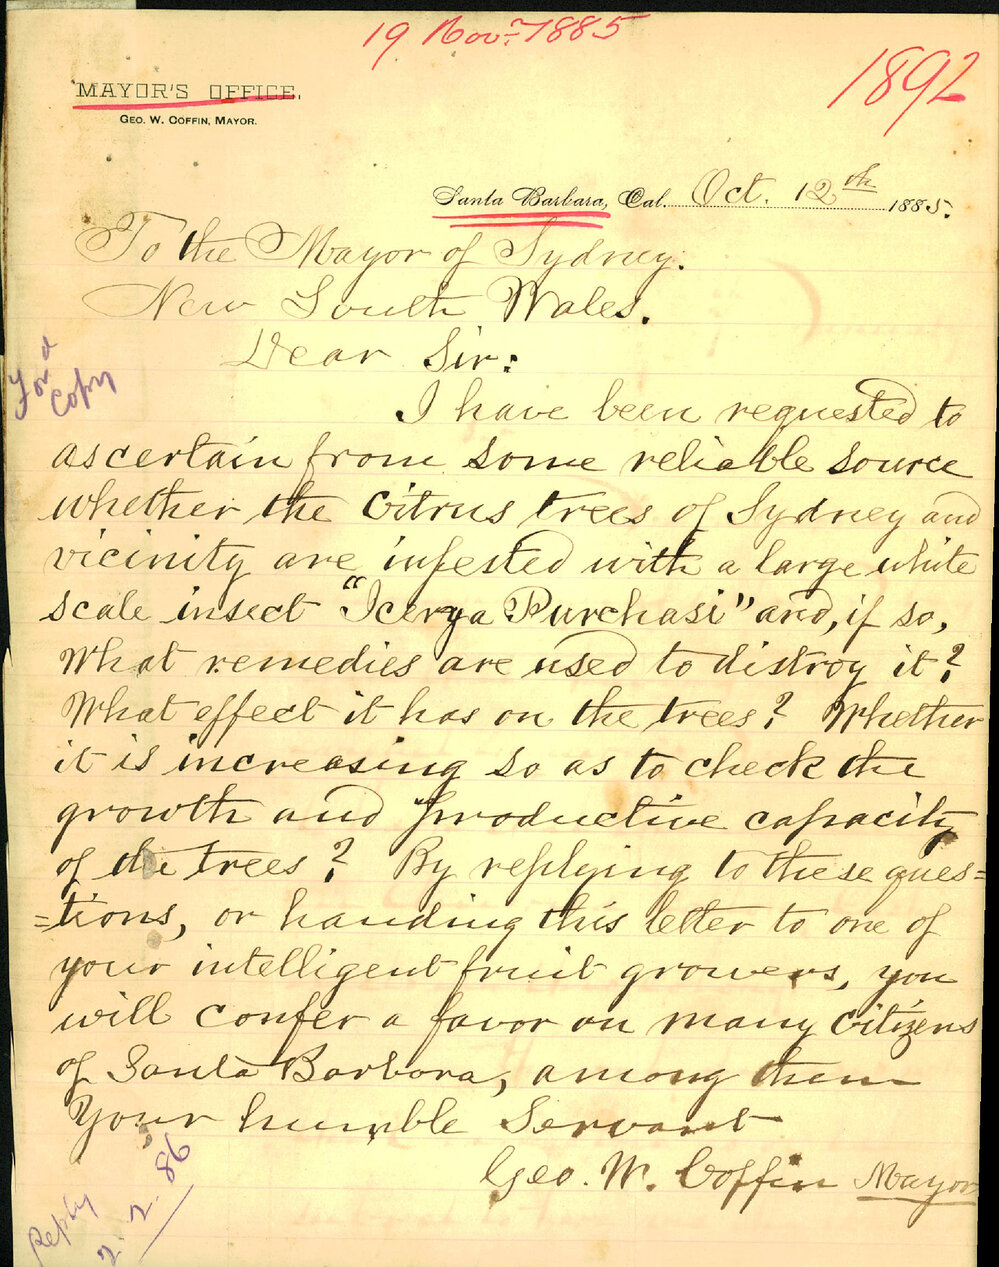 19 Nov. 1885
1892
MAYOR'S OFFICE.
GEO. W. COFFIN, MAYOR.
Santa Barbara, Cal. Oct. 12th 1885.
To the Mayor of Sydney.
New South Wales.
Dear Sir:
Ford
Copy
I have been requested to
ascertain from some reliable source
whether the Citrus trees of Sydney and
vicinity are infested with a large white
scale insect "Icerya Purchasi" and, if so,
What remedies are used to distroy it?
What effect it has on the trees? Whether
it is increasing so as to check the
growth and productive capacity
of the trees? By replying to these ques=
=tions, or handing this letter to one of
your intelligent fruit growers, you
will confer a favor on many Citizens
of Santa Barbara, among them
Your humble Servant
Geo. W. Coffin Mayor
Reply
2.2.86